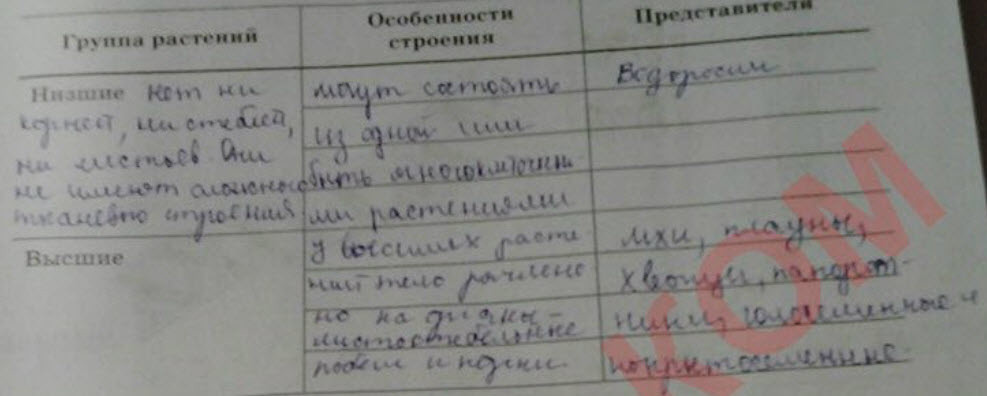 Группа растений
Особенности
строения
Представители
Низшие нет ни
корней, ни стеблей,
ни листьев. Они
не имеют сложного
тканевого строения
могут состоять
из одной или
быть многоклеточны
ми растениями
Водоросли
Высшие
У высших расте
ний тело расчлене
но на
листостебельные
побеги и корни.
мхи, плауны,
хвощи, папорот-
ники, голосеменные и
покрытосеменные.
КОМ